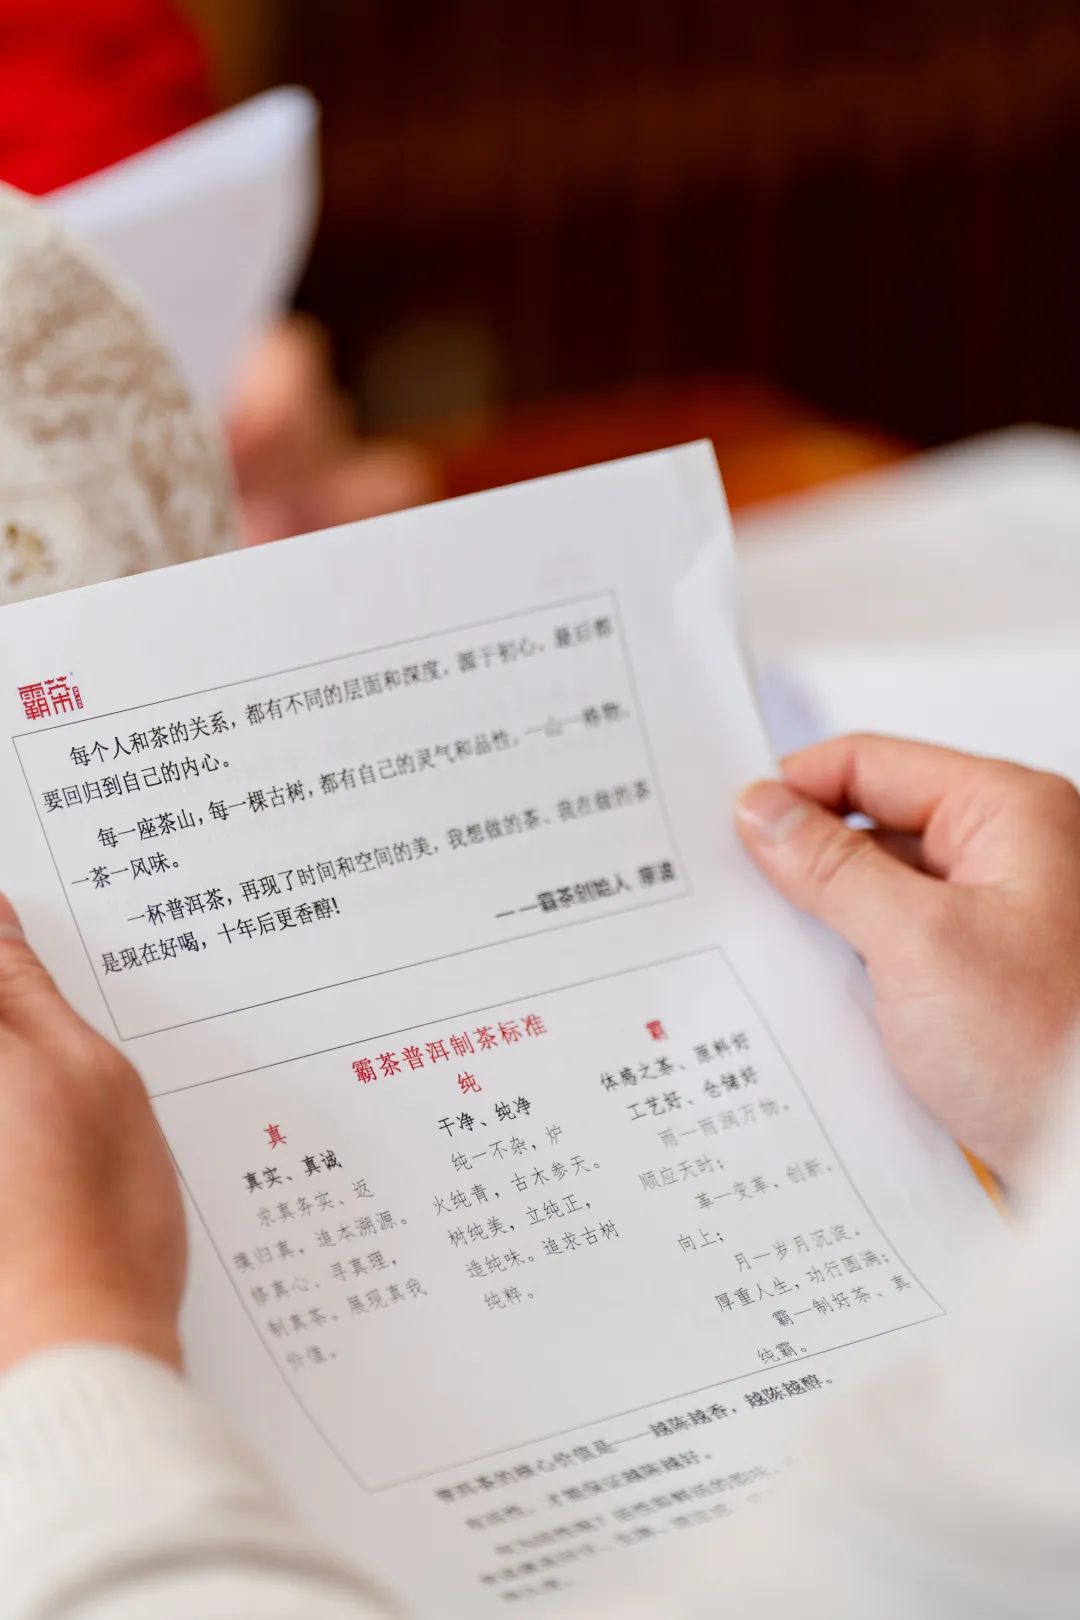 霸茶
每个人和茶的关系，都有不同的层面和深度，源于初心，最后都
要回归到自己的内心。
每一座茶山，每一棵古树，都有自己的灵气和品性，一山一格物，
一茶一风味。
一杯普洱茶，再现了时间和空间的美，我想做的茶、我在做的茶
是现在好喝，十年后更香醇！
——霸茶创始人
霸茶普洱制茶标准
真
真实、真诚
求真务实、返
璞归真，追本溯源。
修真心、寻真理，
制真茶。展现真我
价值。
纯
干净、纯净
纯一不杂，炉
火纯青，古木参天。
树纯美，立纯正，
造纯味。追求古树
纯粹。
霸
体感之茶、原料好
工艺好、仓储好
雨一雨润万物，
顺应天时；
革一变革，创新，
向上；
月一岁月沉淀，
厚重人生，功行圆满；
霸一制好茶、真
纯霸。
普洱茶的核心价值是——越陈越香，越陈越醇。
有活性，才能保证越陈越好。